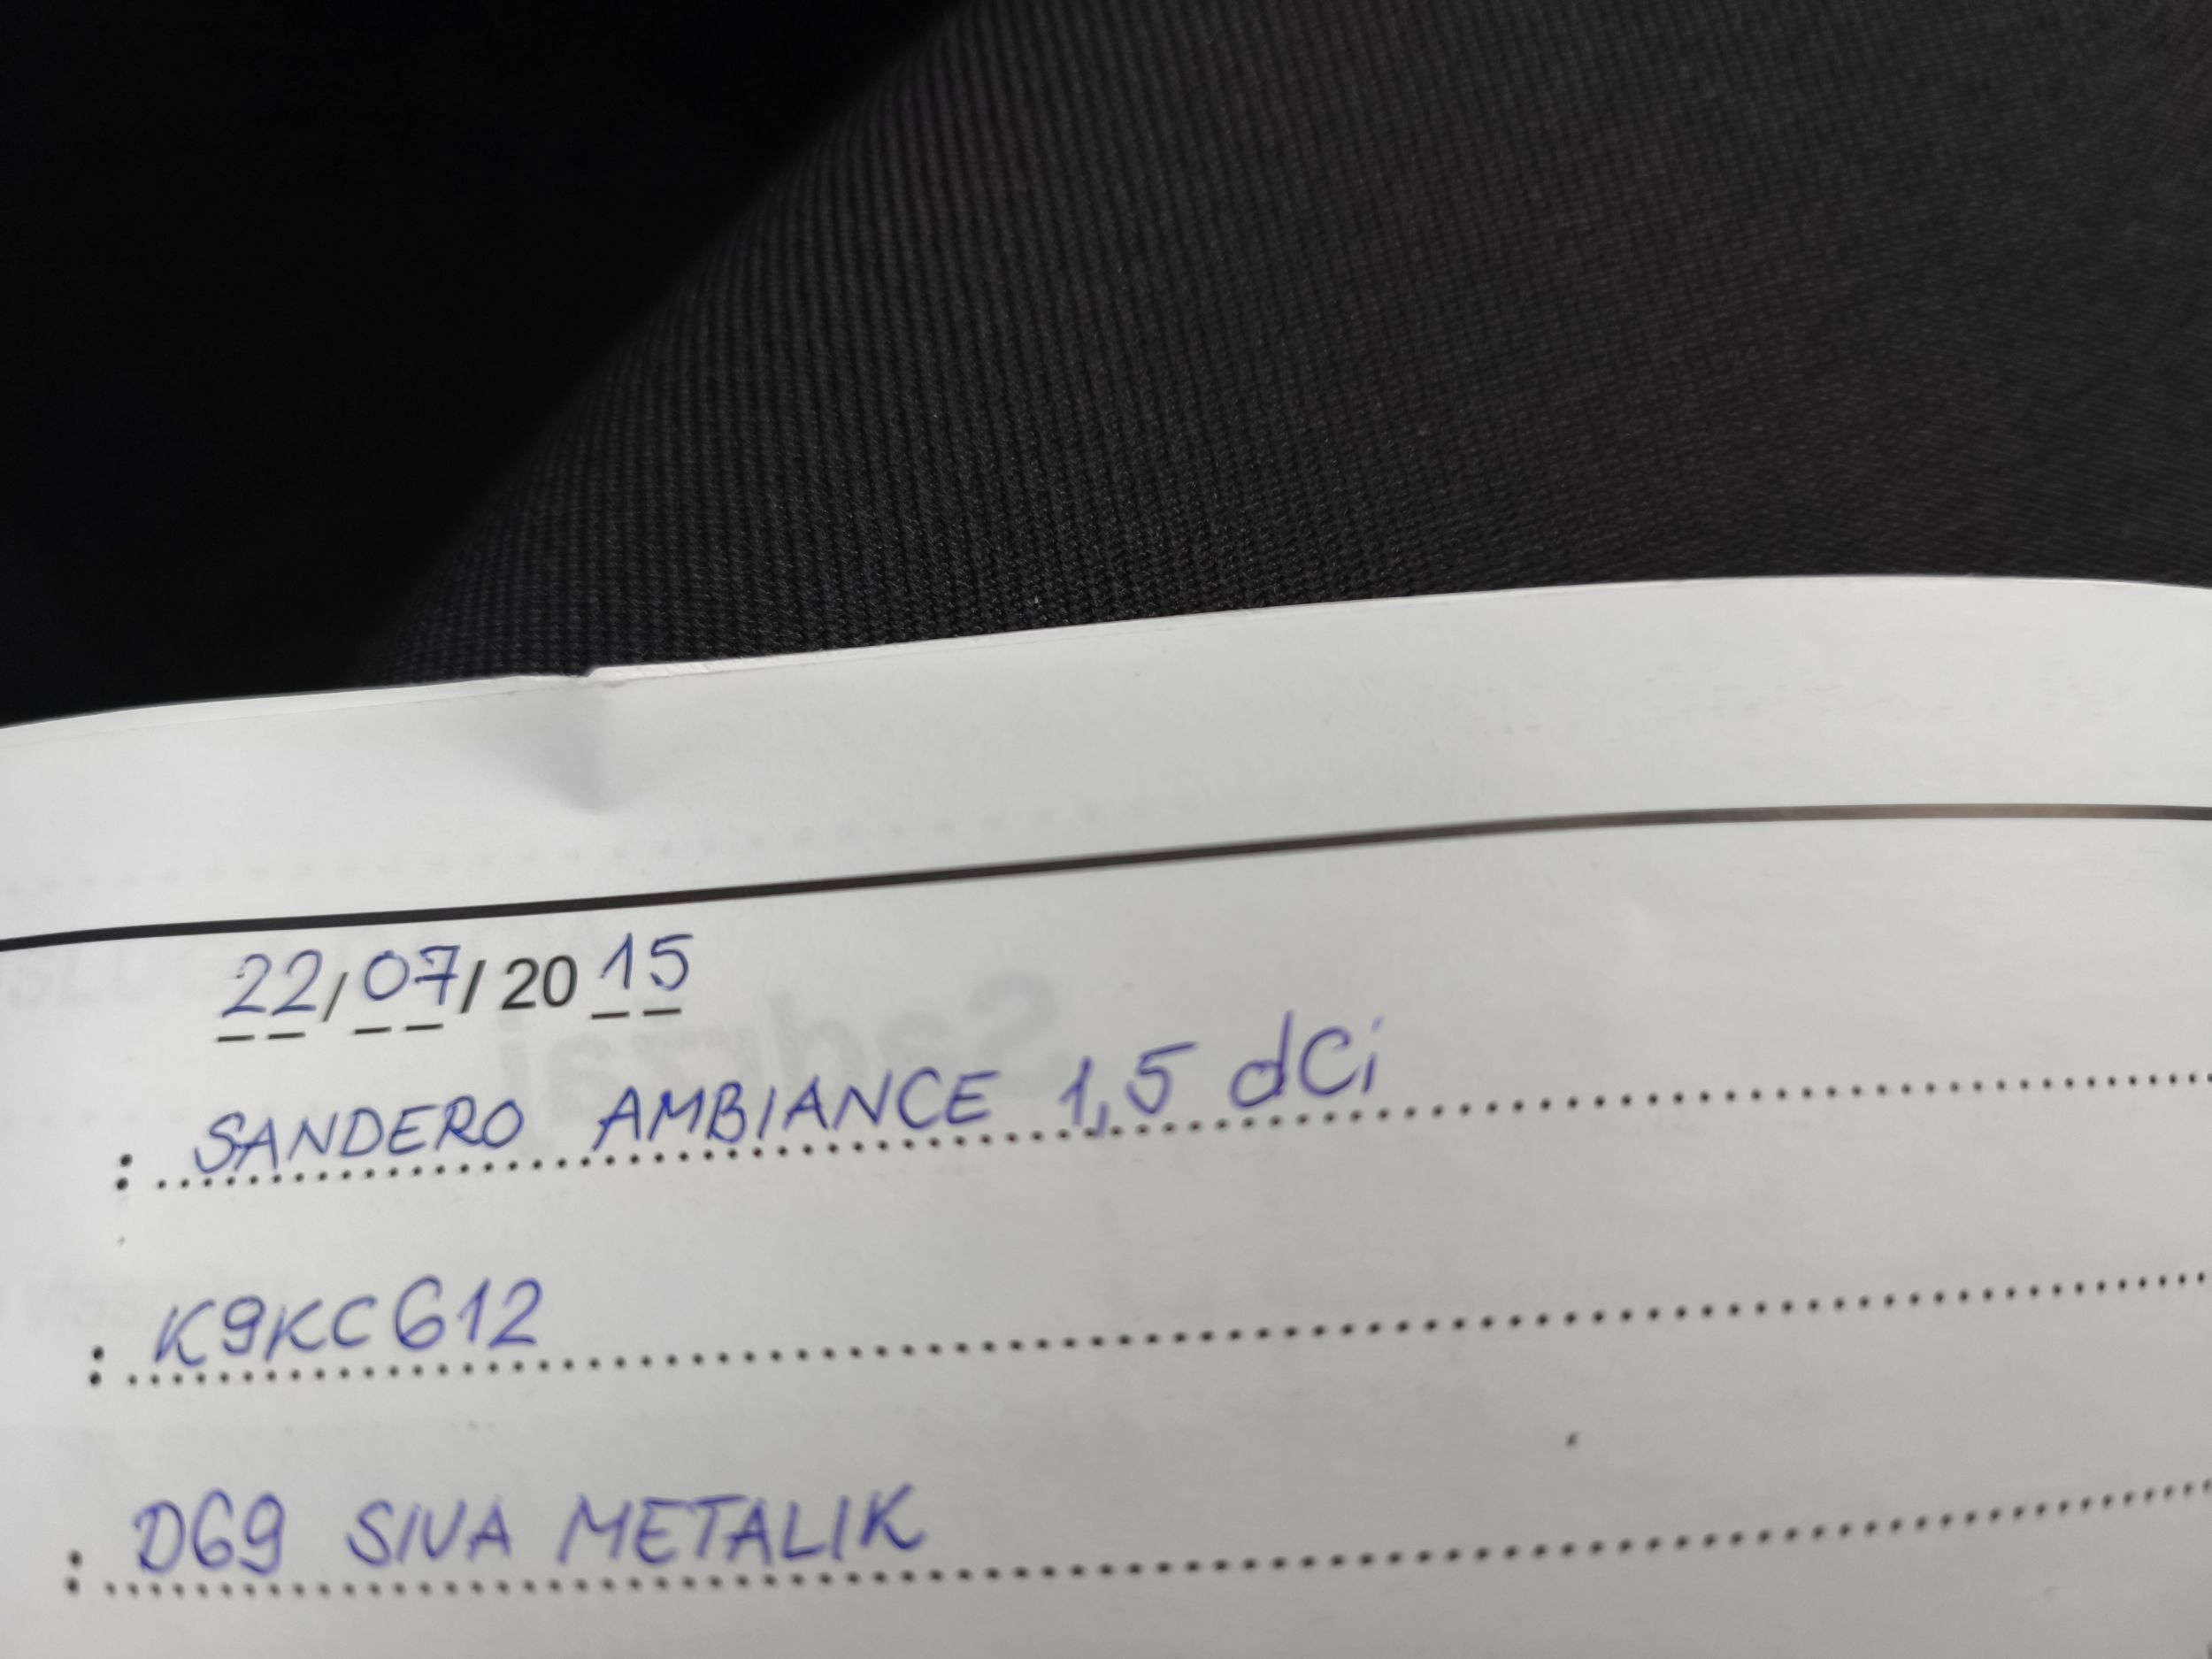 22/07/2015
: SANDERO AMBIANCE 1,5 dCi
: K9KC612
: D69 SIVA METALIK
Sadržaj